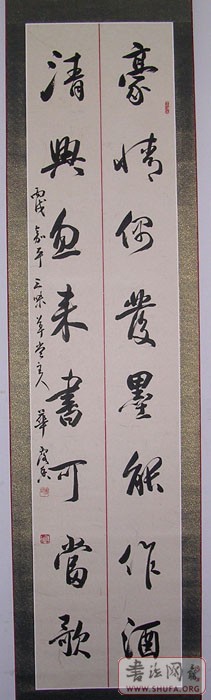 豪情偶發墨能作酒
清興忽來書可當歌
丙戌嘉平三味草堂主人華
書法网
WWW.SHUFA.ORG